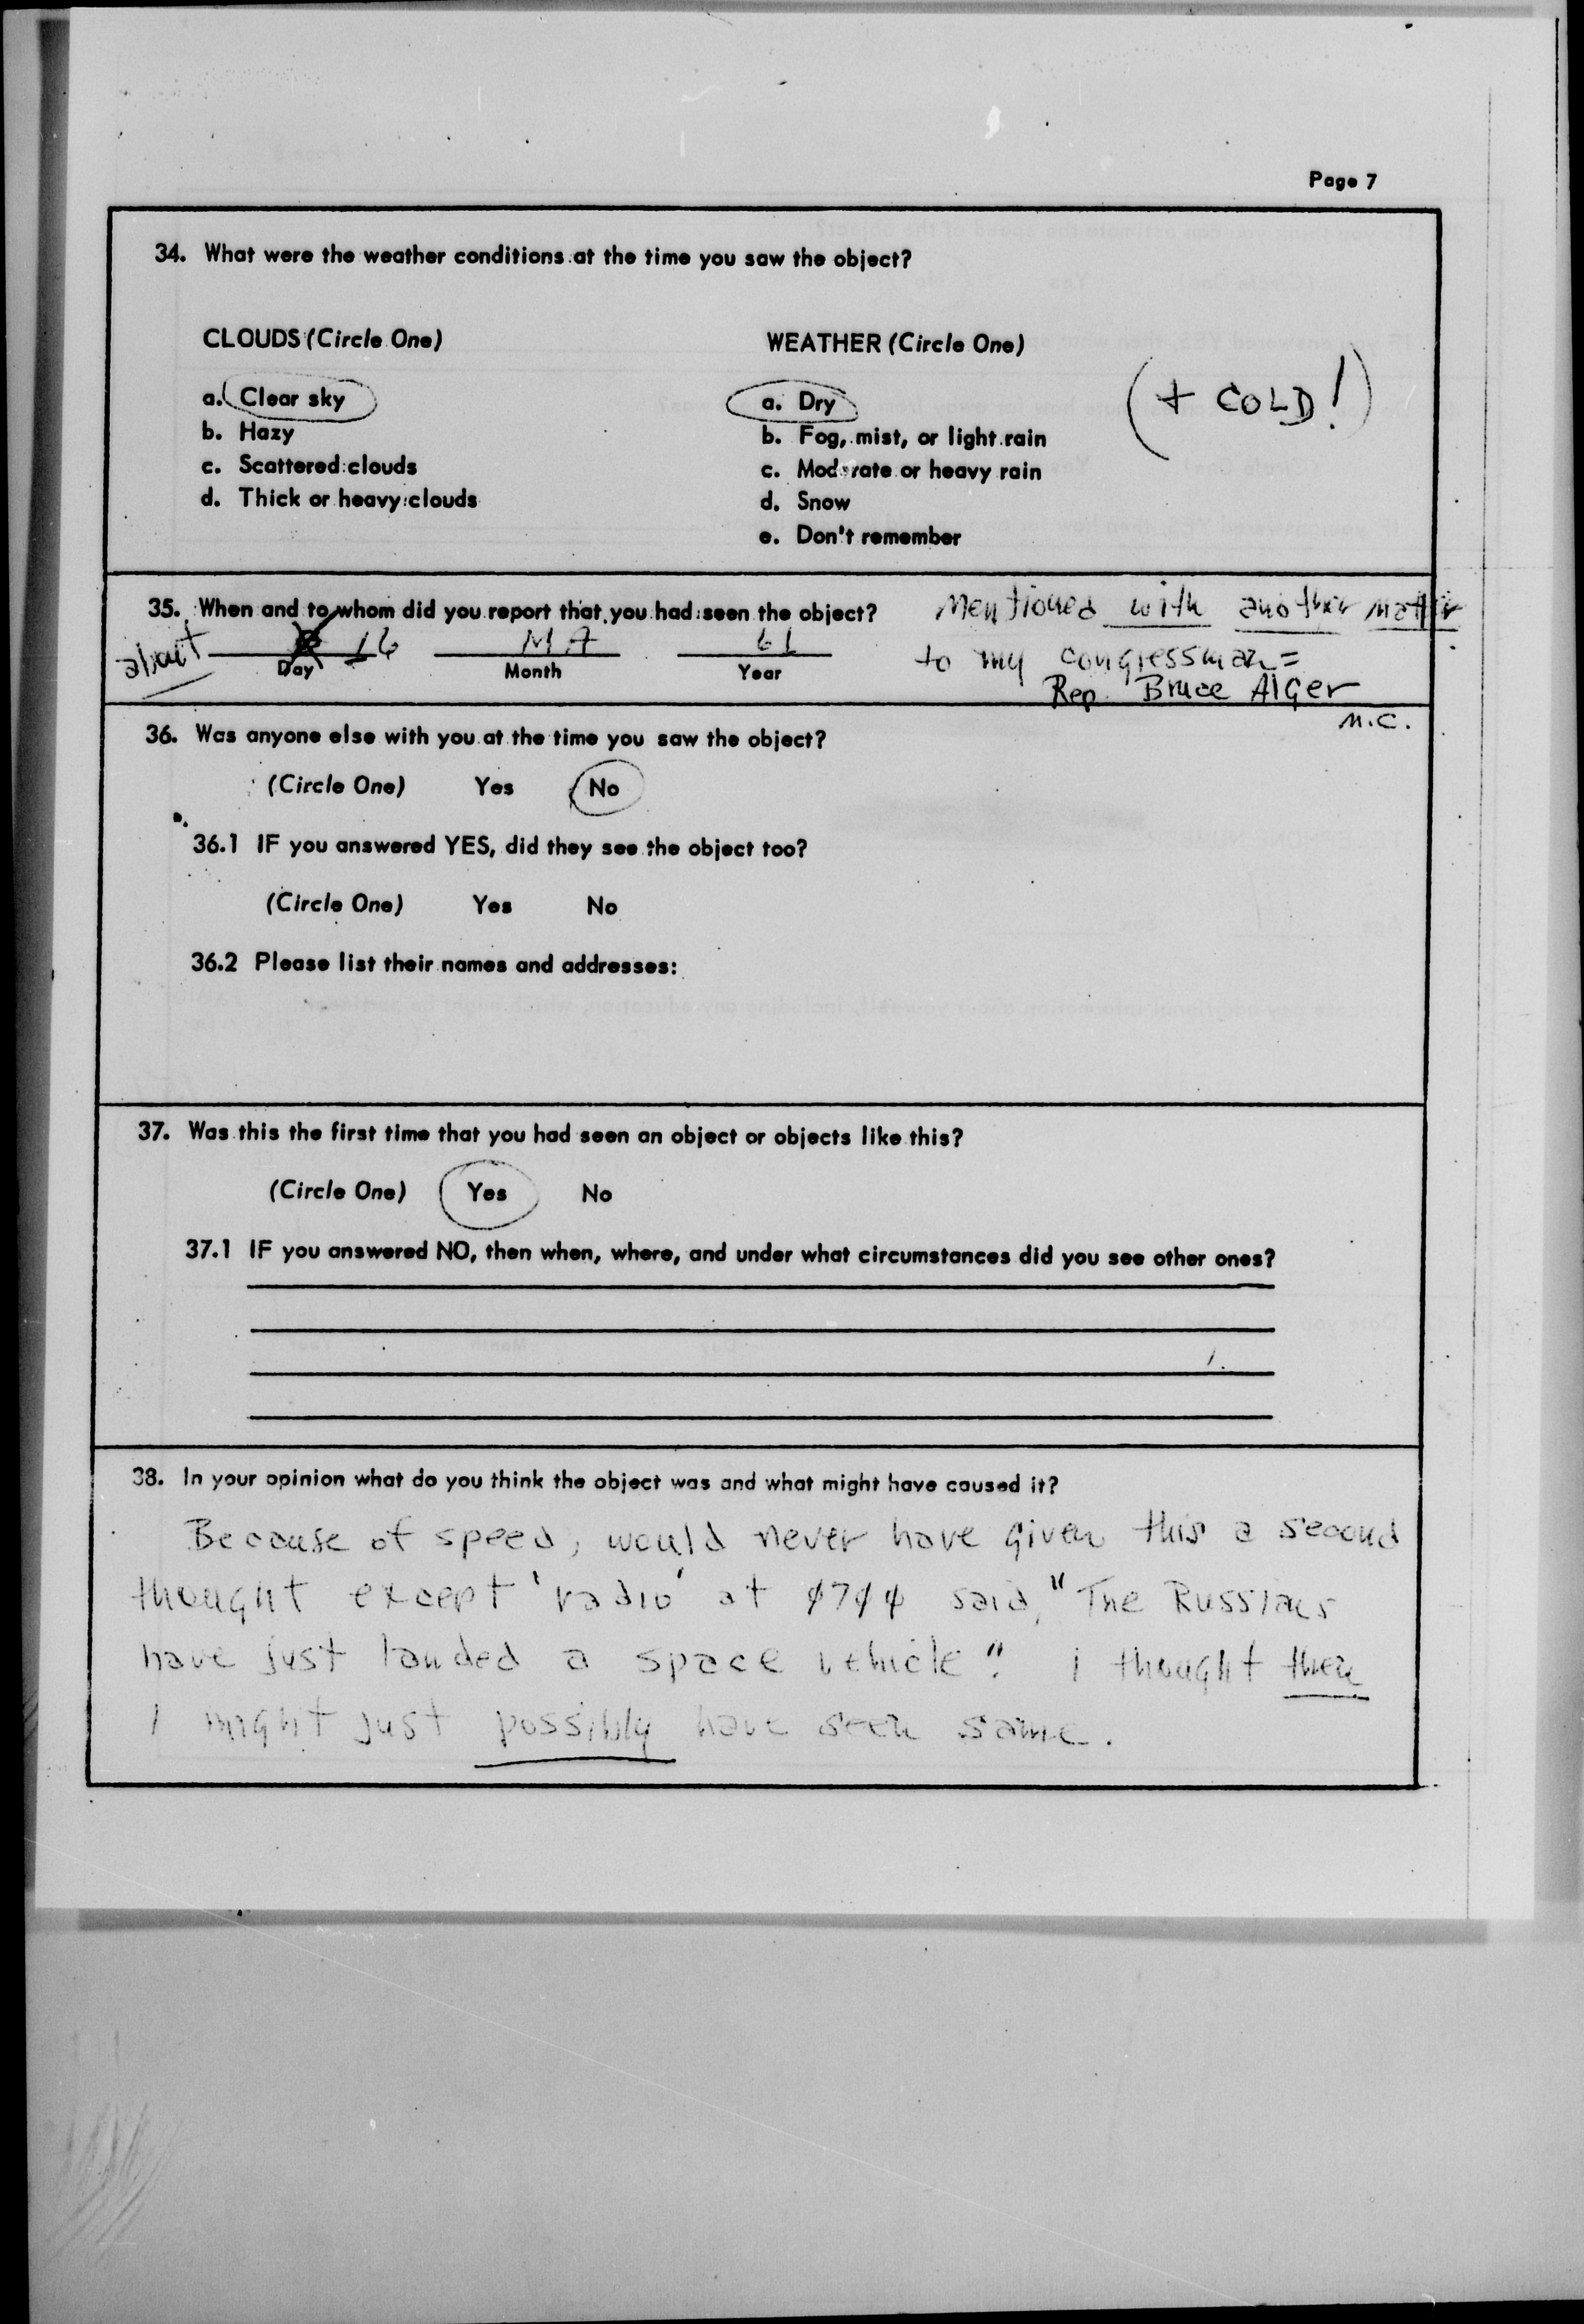 Page 7
34. What were the weather conditions at the time you saw the object?
CLOUDS (Circle One)
a. Clear sky
b. Hazy
c. Scattered clouds
d. Thick or heavy clouds
WEATHER (Circle One)
a. Dry
b. Fog, mist, or light rain
c. Moderate or heavy rain
d. Snow
e. Don't remember
(+ COLD!)
35. When and to whom did you report that you had seen the object?
about 16 61
Day Month Year
Mentioned with another matter
to my congressman =
Rep. Bruce Alger
M.C.
36. Was anyone else with you at the time you saw the object?
(Circle One) Yes No
36.1 IF you answered YES, did they see the object too?
(Circle One) Yes No
36.2 Please list their names and addresses:
37. Was this the first time that you had seen an object or objects like this?
(Circle One) Yes No
37.1 IF you answered NO, then when, where, and under what circumstances did you see other ones?
38. In your opinion what do you think the object was and what might have caused it?
Because of speed, would never have given this a second
thought except 'radio' at said, "The Russians
have just landed a space vehicle". I thought then
I might just possibly have seen same.